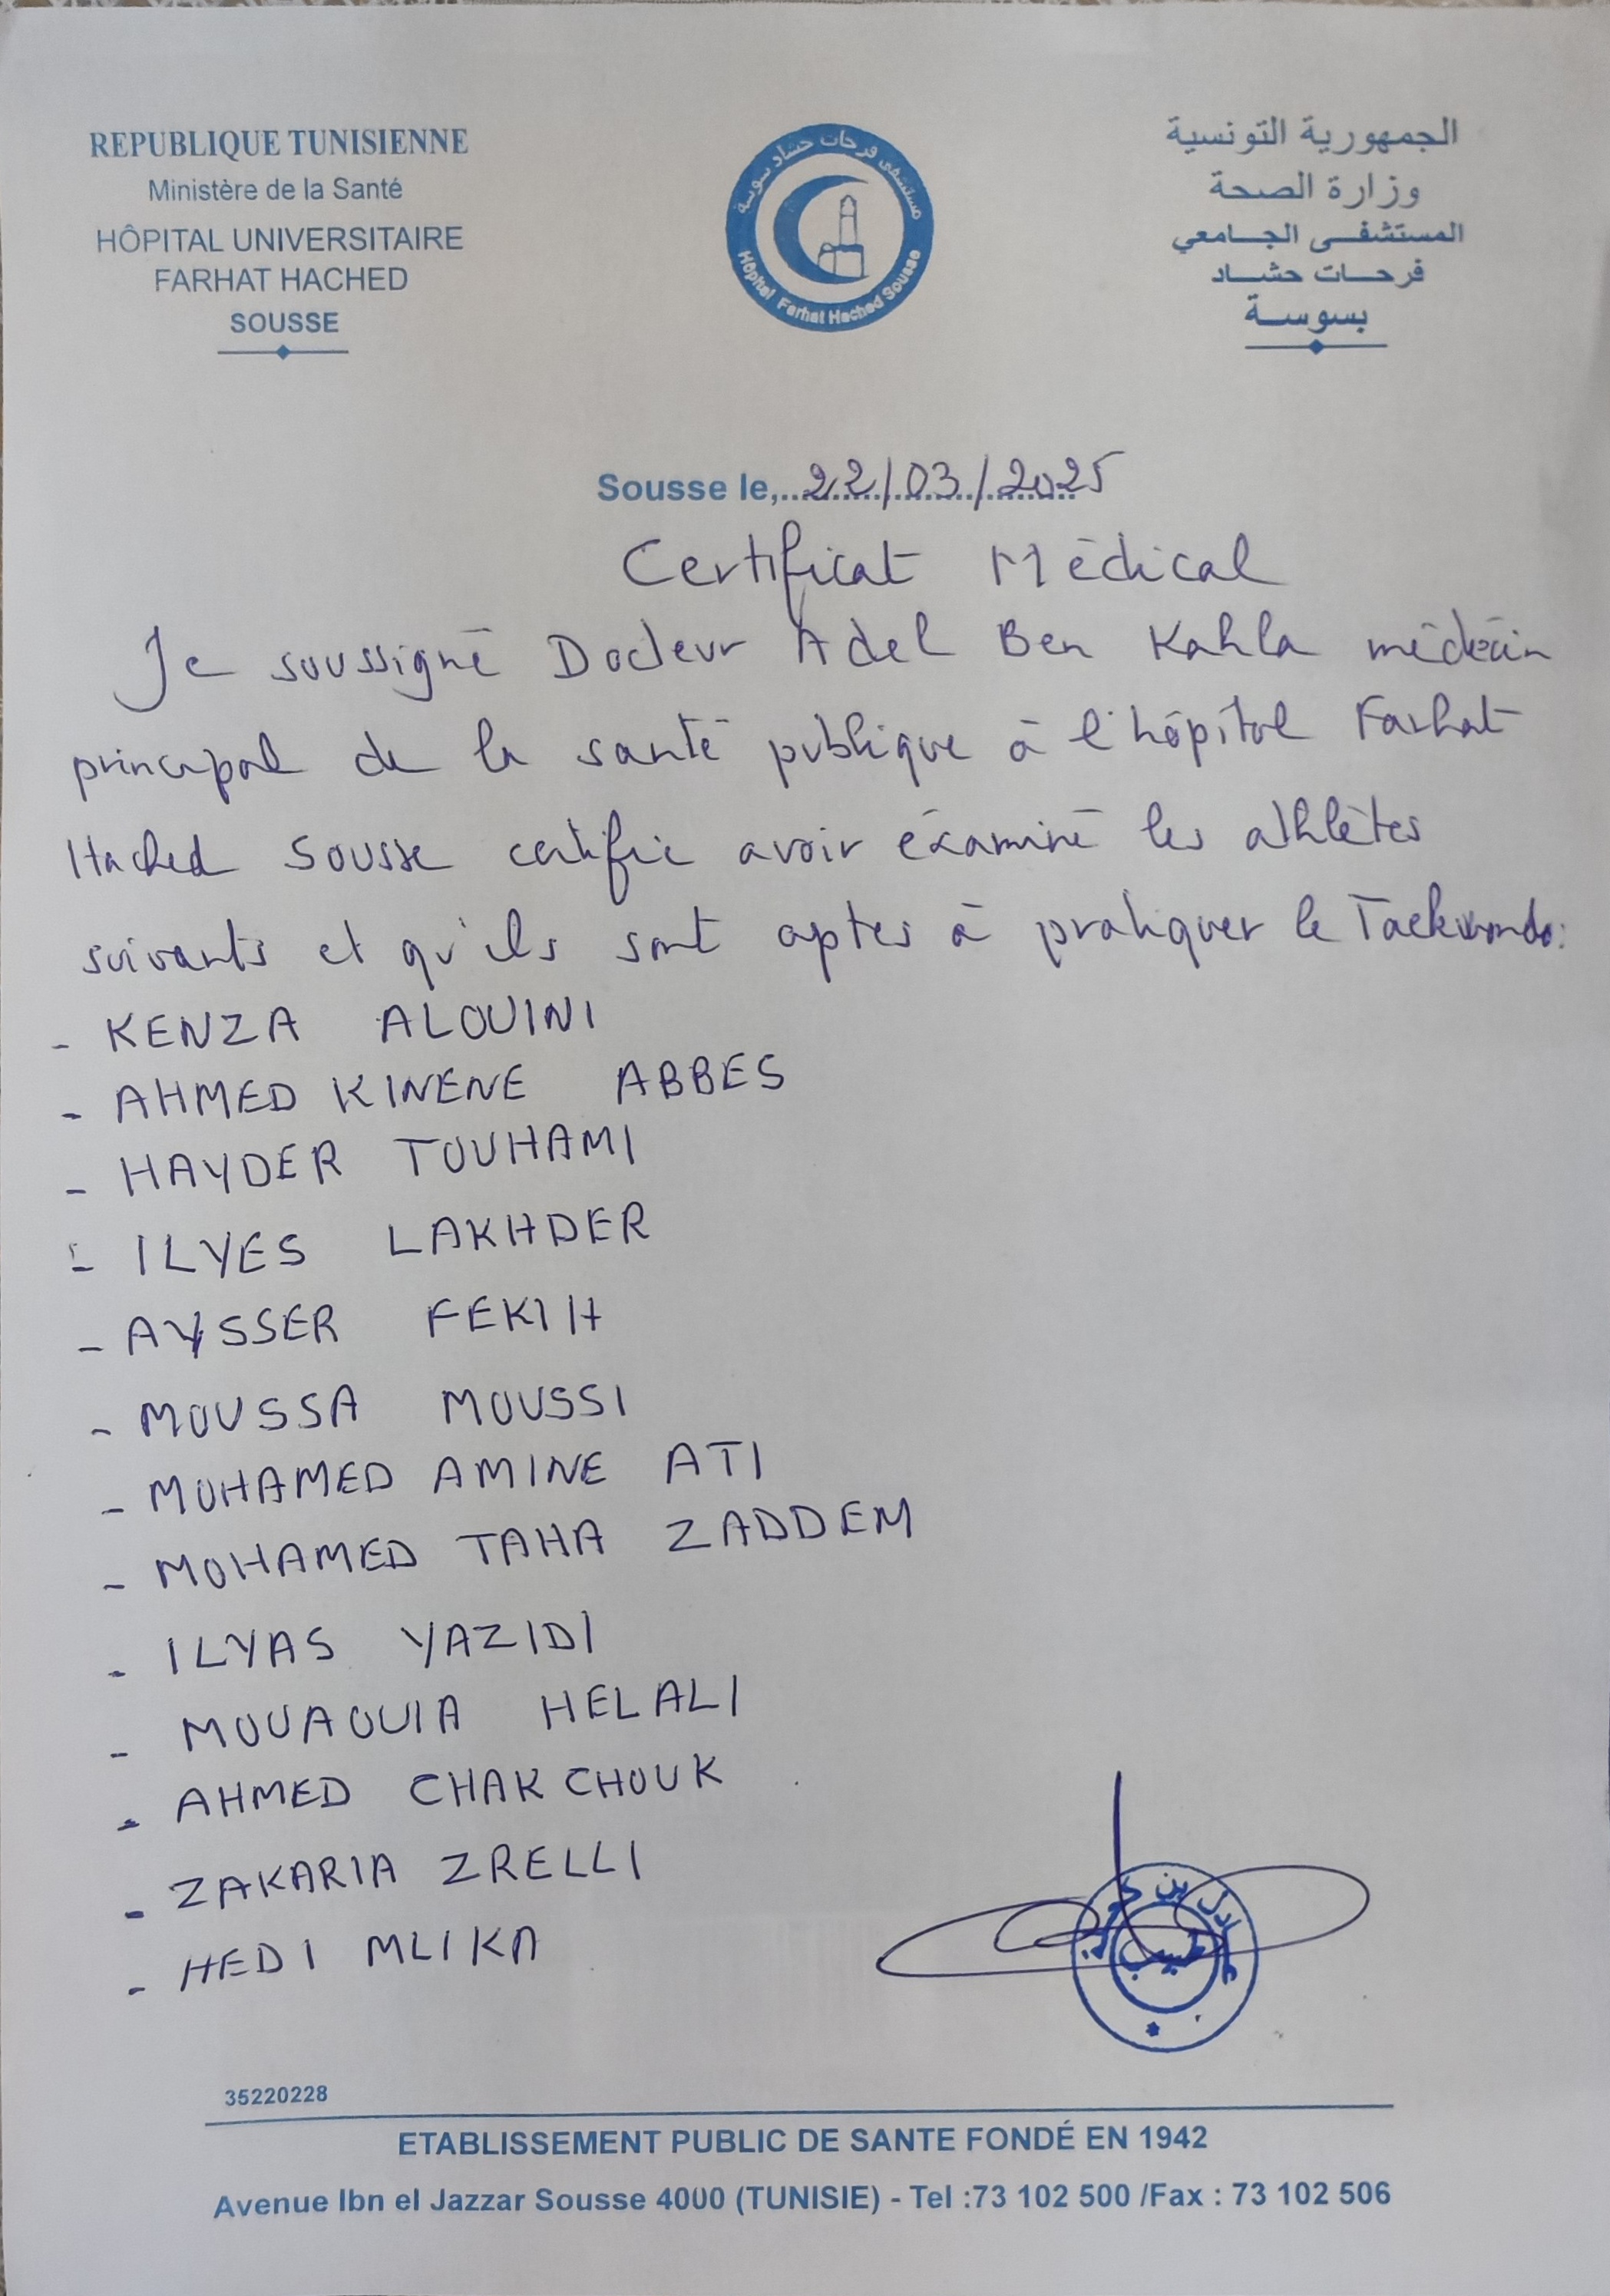 REPUBLIQUE TUNISIENNE
Ministère de la Santé
HÔPITAL UNIVERSITAIRE
FARHAT HACHED
SOUSSE
مستشفى فرحات حشاد سوسة
Hôpital Farhat Hached Sousse
الجمهورية التونسية
وزارة الصحة
المستشفى الجامعي
فرحات حشاد
بسوسة
Sousse le, 22/03/2025
Certificat Médical
Je soussigné Docteur Adel Ben Kahla médecin
principal de la santé publique à l'hôpital Farhat
Hached Sousse certifie avoir éxaminé les athlètes
suivants et qu'ils sont aptes à pratiquer le Taekwondo:
- KENZA ALOUINI
- AHMED KINENE ABBES
- HAYDER TOUHAMI
- ILYES LAKHDER
- AYSSER FEKIH
- MOUSSA MOUSSI
- MOHAMED AMINE ATI
- MOHAMED TAHA ZADDEM
- ILYAS YAZIDI
- MOUAOUIA HELALI
- AHMED CHAKCHOUK
- ZAKARIA ZRELLI
- HEDI MLIKA
عادل بن
طبيب
35220228
ETABLISSEMENT PUBLIC DE SANTE FONDÉ EN 1942
Avenue Ibn el Jazzar Sousse 4000 (TUNISIE) - Tel :73 102 500 /Fax : 73 102 506